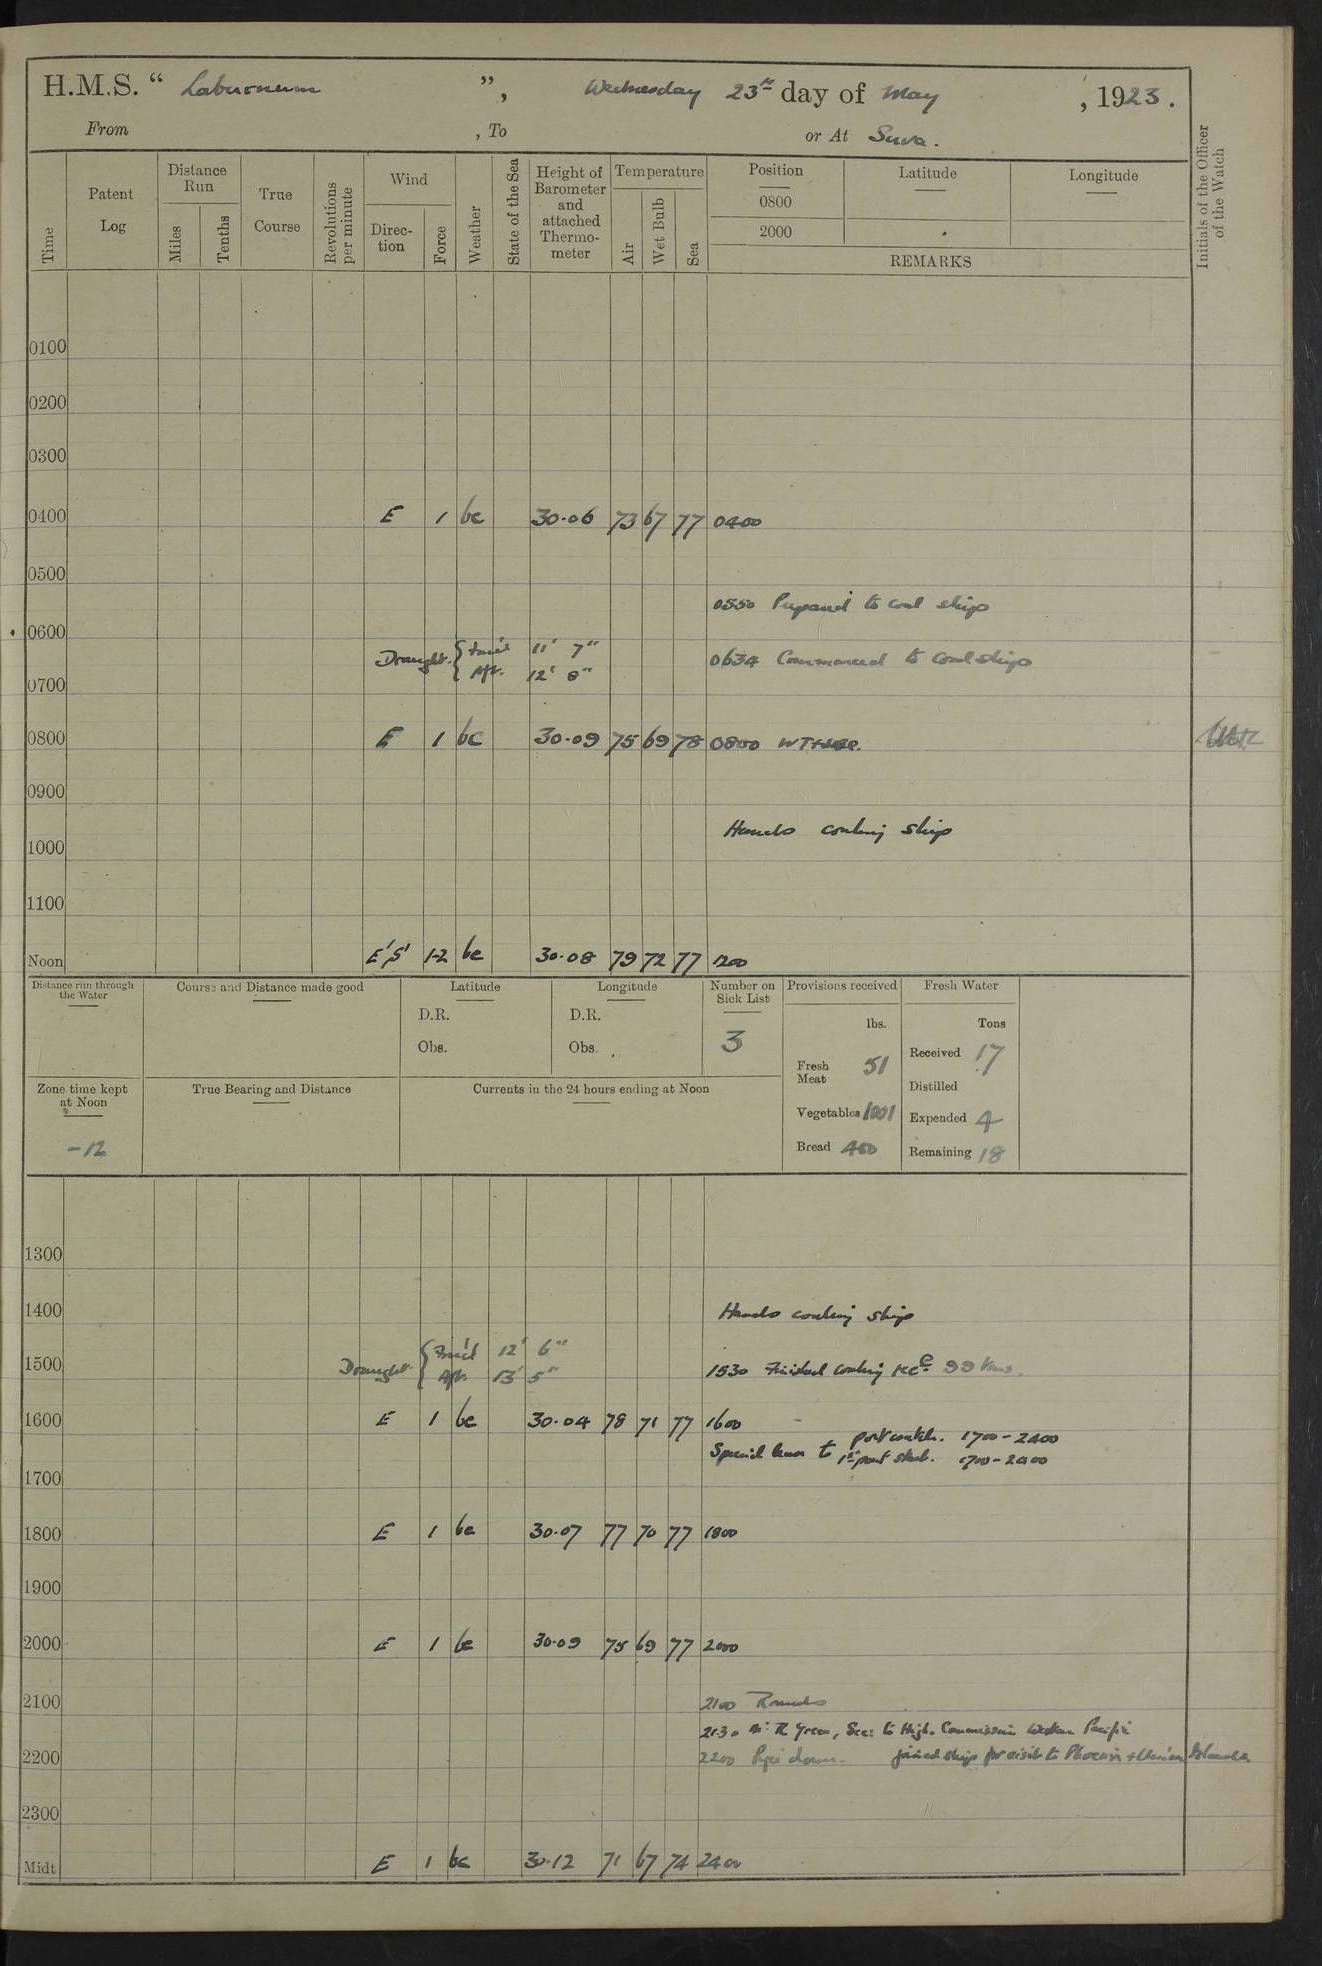 H.M.S. “ Laburnum ”, Wednesday 23rd day of May , 1923.
From , To or At Suva.
Time
Patent Log
Distance Run
Miles
Tenths
True Course
Revolutions per minute
Wind
Direc-tion
Force
Weather
State of the Sea
Height of Barometer and attached Thermo-meter
Temperature
Air
Wet Bulb
Sea
Position
Latitude
Longitude
0800
2000
REMARKS
Initials of the Officer of the Watch
0100
0200
0300
0400 E 1 bc 30.06 73 67 77 0400
0500
0550 Prepared to coal ship
0600
Draught { For'd 11' 7" 0634 Commenced to coal ship
Aft. 12' 8"
0700
0800 E 1 bc 30.09 75 69 78 0800
0900
Hands coaling ship
1000
1100
Noon E'S' 1-2 bc 30.08 79 72 77 1200
Distance run through the Water
Course and Distance made good
Latitude
D.R.
Obs.
Longitude
D.R.
Obs.
Number on Sick List
3
Provisions received
lbs.
Fresh Meat 51
Vegetables 1001
Bread 400
Fresh Water
Tons
Received 17
Distilled
Expended 4
Remaining 18
Zone time kept at Noon
-12
True Bearing and Distance
Currents in the 24 hours ending at Noon
1300
1400 Hands coaling ship
Draught { For'd 12' 6"
Aft. 13' 5"
1500 1530 Finished coaling rec'd 99 tons.
1600 E 1 bc 30.04 78 71 77 1600
Special leave to port watch. 1700-2400
1st part starb. 1700-2400
1700
1800 E 1 bc 30.07 77 70 77 1800
1900
2000 E 1 bc 30.09 75 69 77 2000
2100 2100 Rounds
2130 Mr R Green, Sec: to High Commission Western Pacific
joined ship for visit to Phoenix + Union Islands
2200 2200 Pipe down.
2300
Midt E 1 bc 30.12 71 67 74 2400